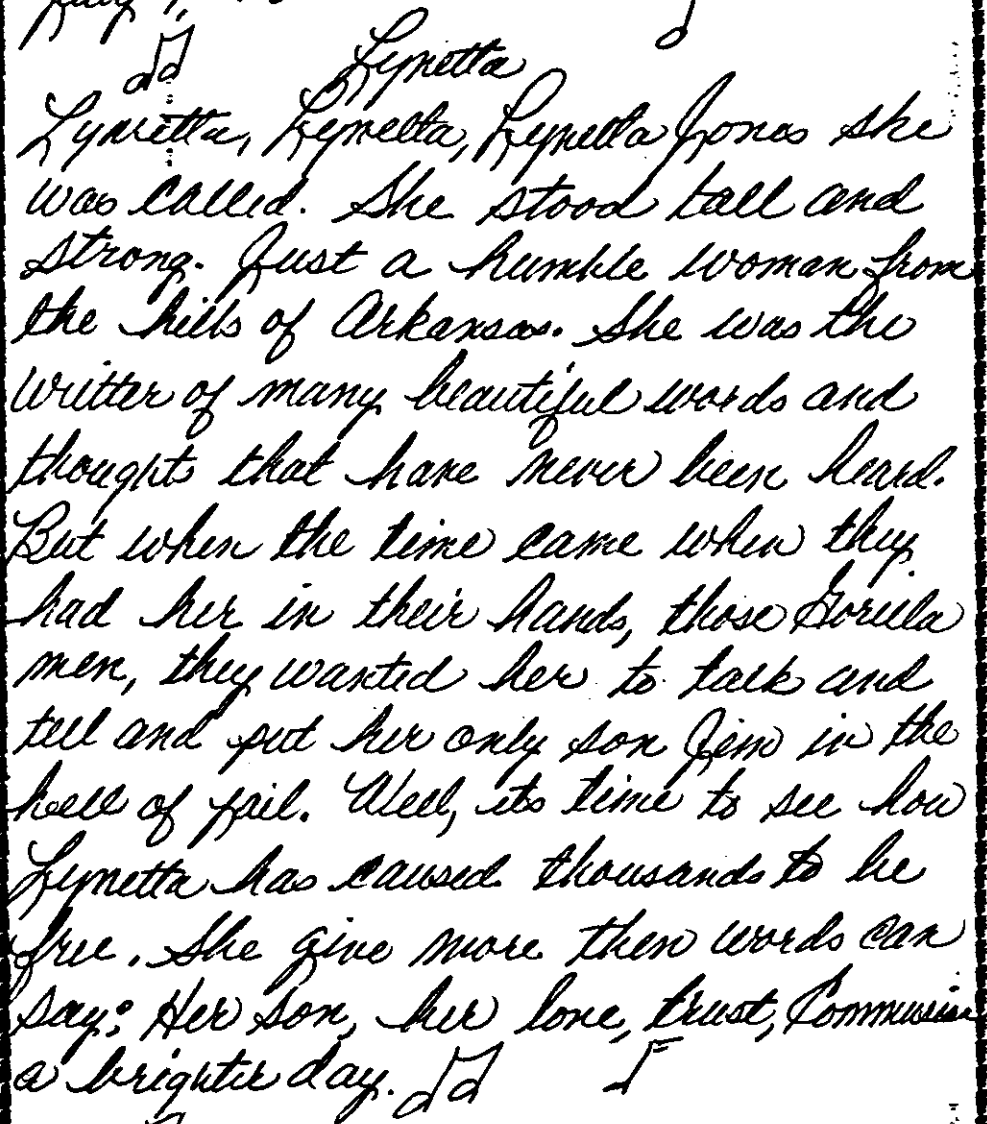 Lynetta
Lynetta, Lynetta, Lynetta Jones she
was called. She stood tall and
strong. Just a humble woman from
the hills of Arkansas. She was the
writter of many beautiful words and
thoughts that have never been heard.
But when the time came when they
had her in their hands, those Gorilla
men, they wanted her to talk and
tell and put her only son Jim in the
hell of jail. Well, its time to see how
Lynetta has caused thousands to be
free. She give more then words can
say: Her son, her love, trust,
a brighter day.